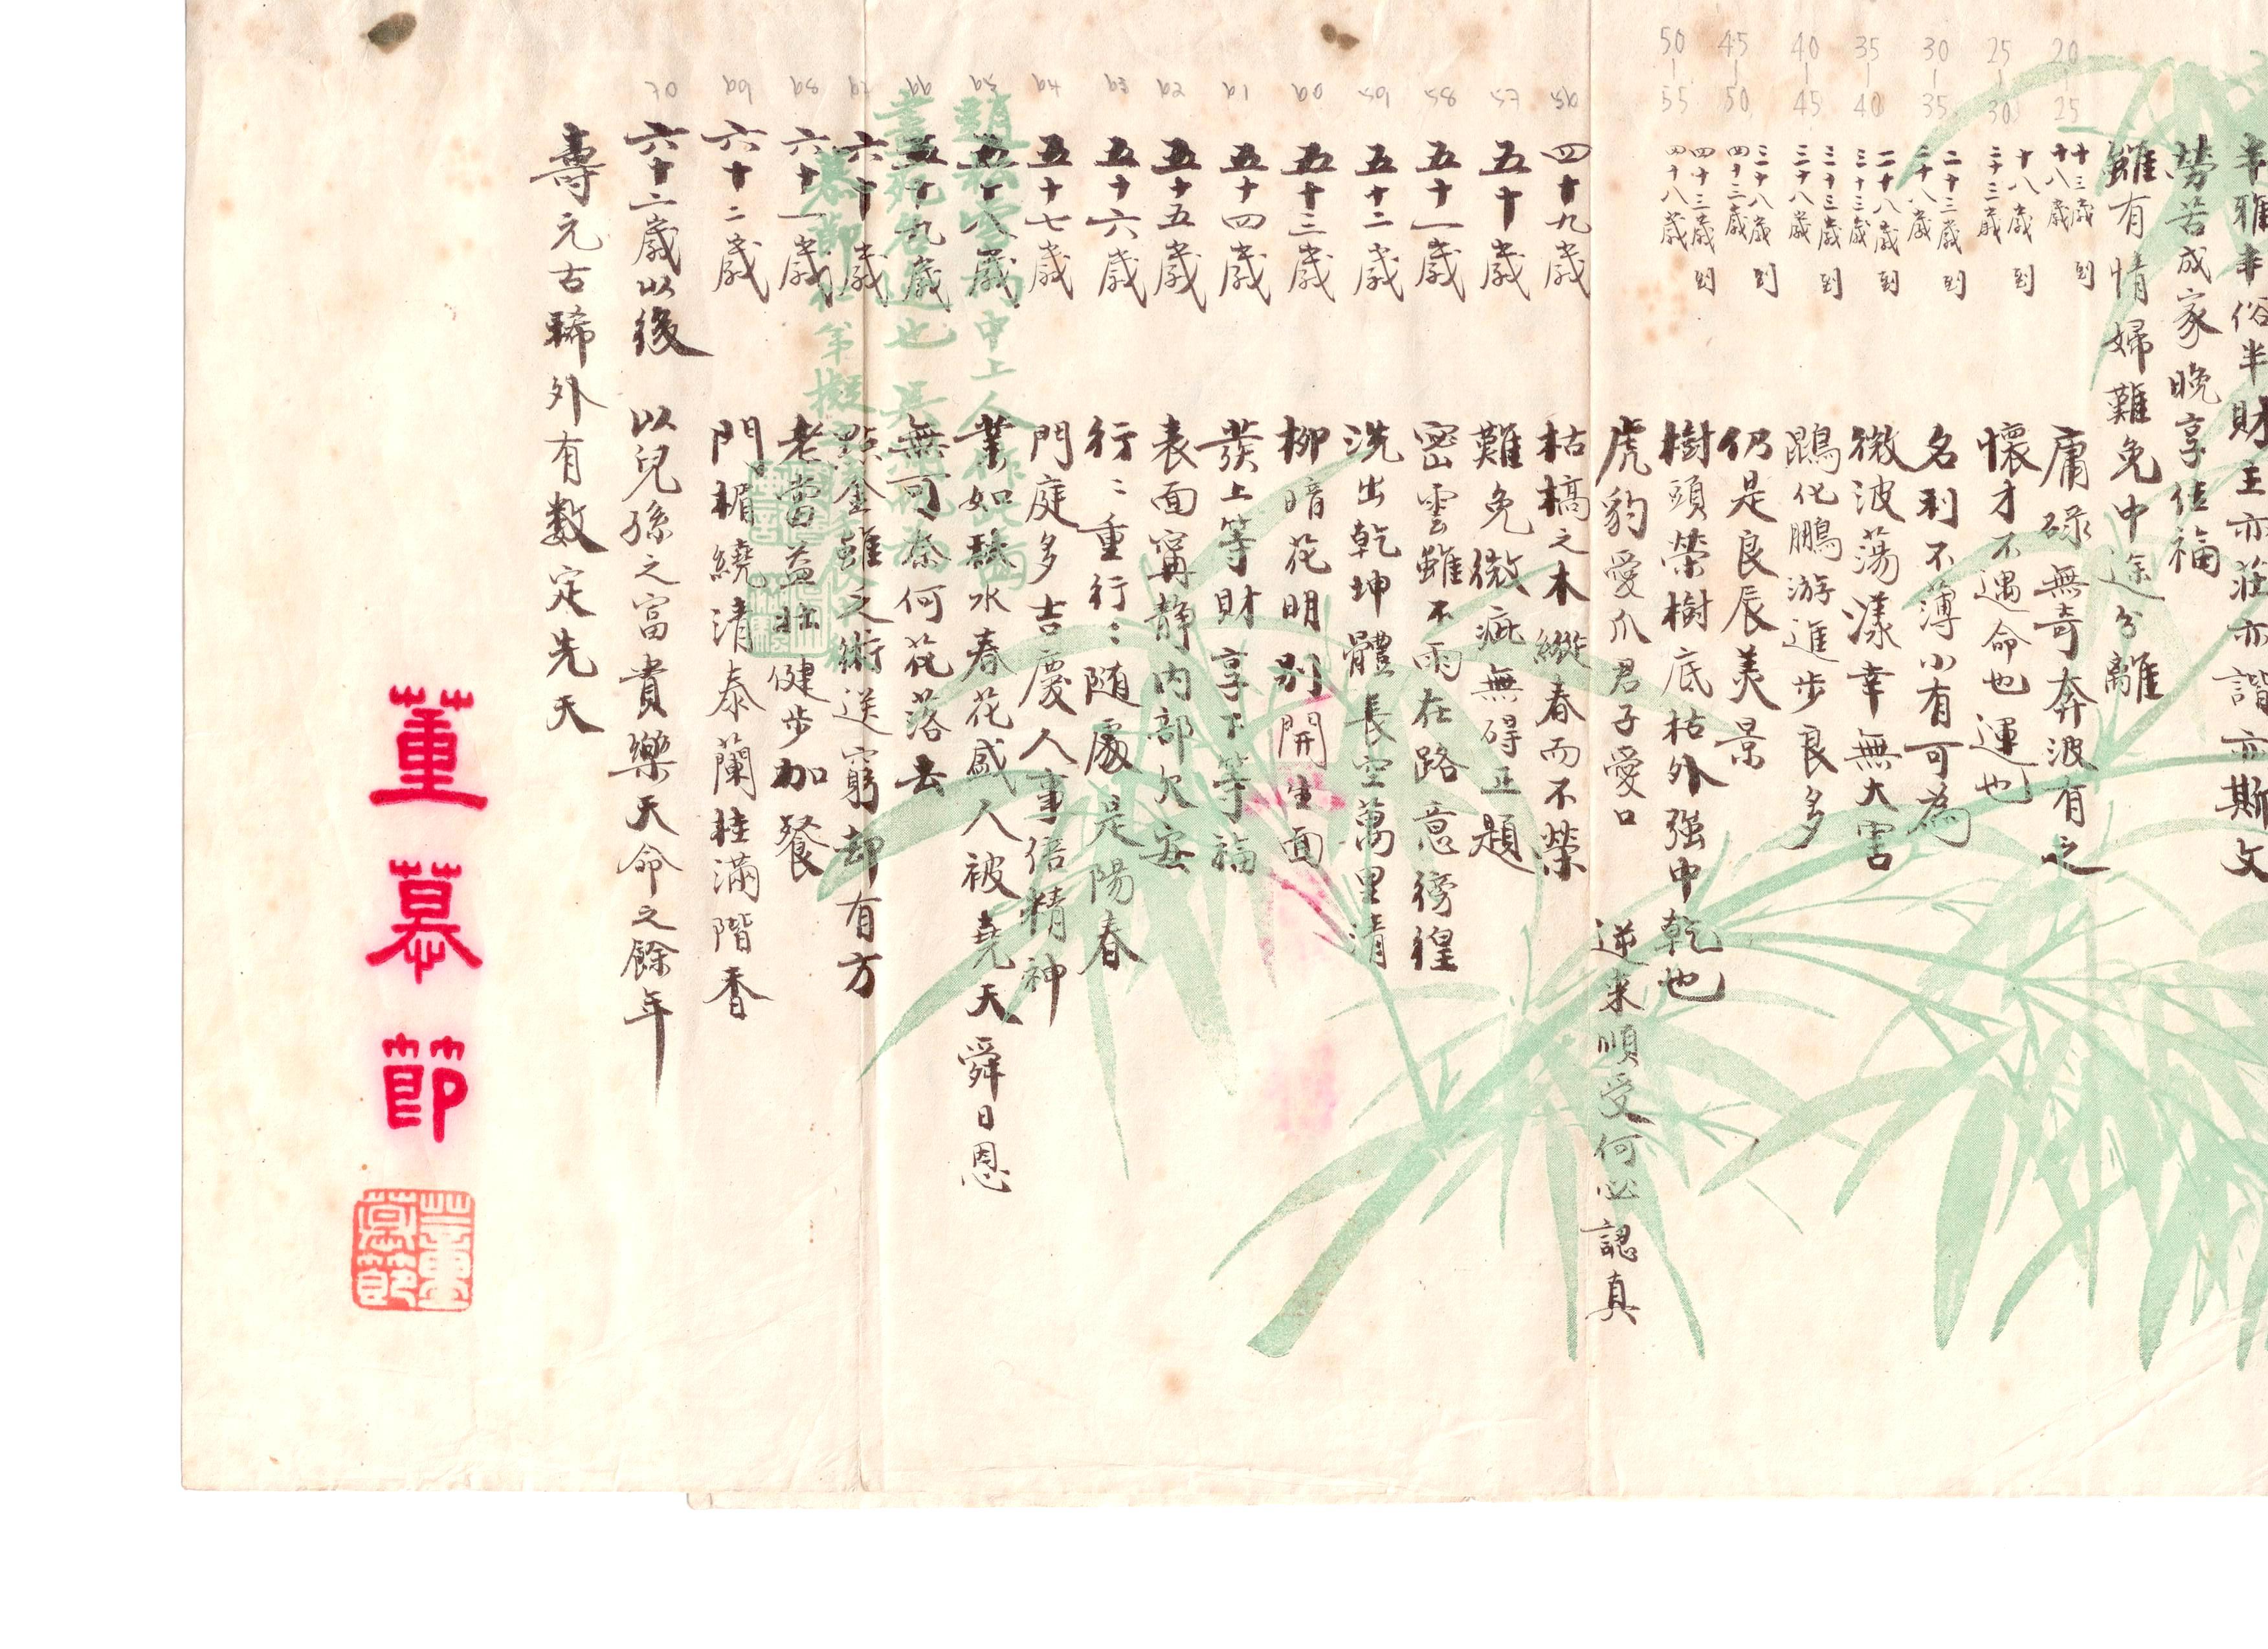 半雅半俗半財主亦莊亦諧亦斯文
勞苦成家晚享佳福
雖有情婦難免中途分離
20-25
十三歲到十八歲
庸碌無奇奔波有之
25-30
十八歲到二十三歲
懷才不遇命也運也
30-35
二十三歲到二十八歲
名利不薄小有可為
35-40
二十八歲到三十三歲
微波蕩漾幸無大害
40-45
三十三歲到三十八歲
鵾化鵬游進步良多
45-50
三十八歲到四十三歲
仍是良辰美景
50-55
四十三歲到四十八歲
樹頭榮樹底枯外強中乾也
虎豹愛爪君子愛口 逆来順受何必認真
四十九歲 枯槁之木縱春而不榮
五十歲 難免微疵無碍正題
五十一歲 密雲雖不雨在路意徬徨
五十二歲 洗出乾坤體長空萬里清
五十三歲 柳暗花明別開生面
五十四歲 發上等財享下等福
五十五歲 表面甯靜內部欠安
五十六歲 行:重行:随處是陽春
五十七歲 門庭多吉慶人事倍精神
五十八歲 業如秋水春花感人被堯天舜日恩
五十九歲 無可奈何花落去
六十歲 點金雖乏術送窮却有方
六十一歲 老當益壯健步加餐
六十二歲 門楣繞清泰蘭桂滿階香
六十二歲以後 以兒孫之富貴樂天命之餘年
壽元古稀外有数定先天
董慕節
董慕節